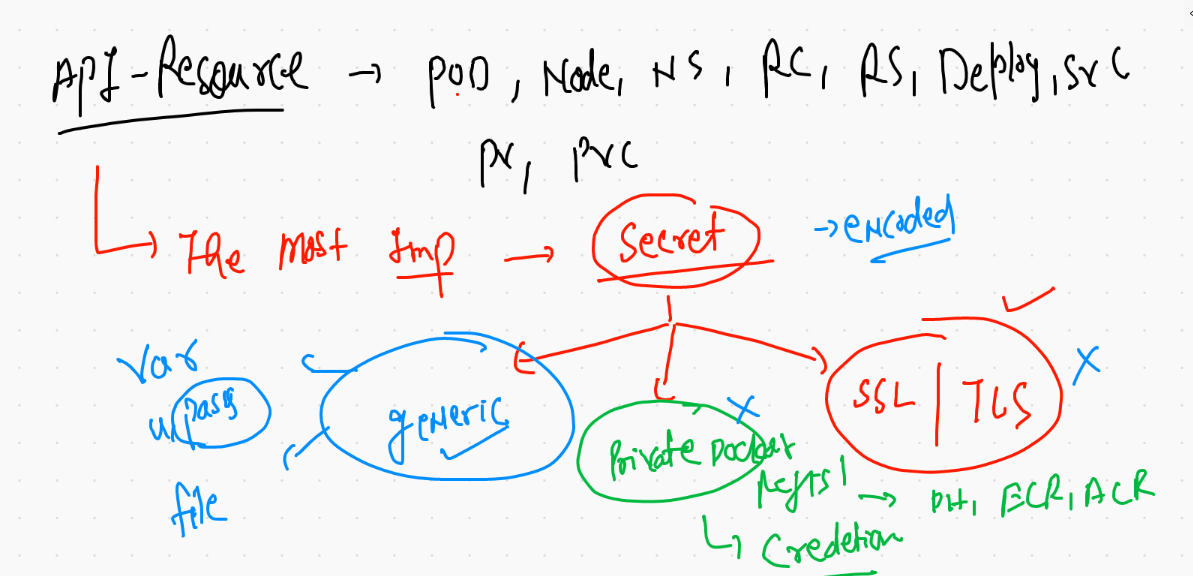 API-Resource → POD, Node, NS, RC, RS, Deploy, SVC
PV, PVC
→ The Most Imp → Secret → encoded
Var
u/pass
file
generic
Private Docker
Regis
→ DH, ECR, ACR
Credetion
SSL | TLS